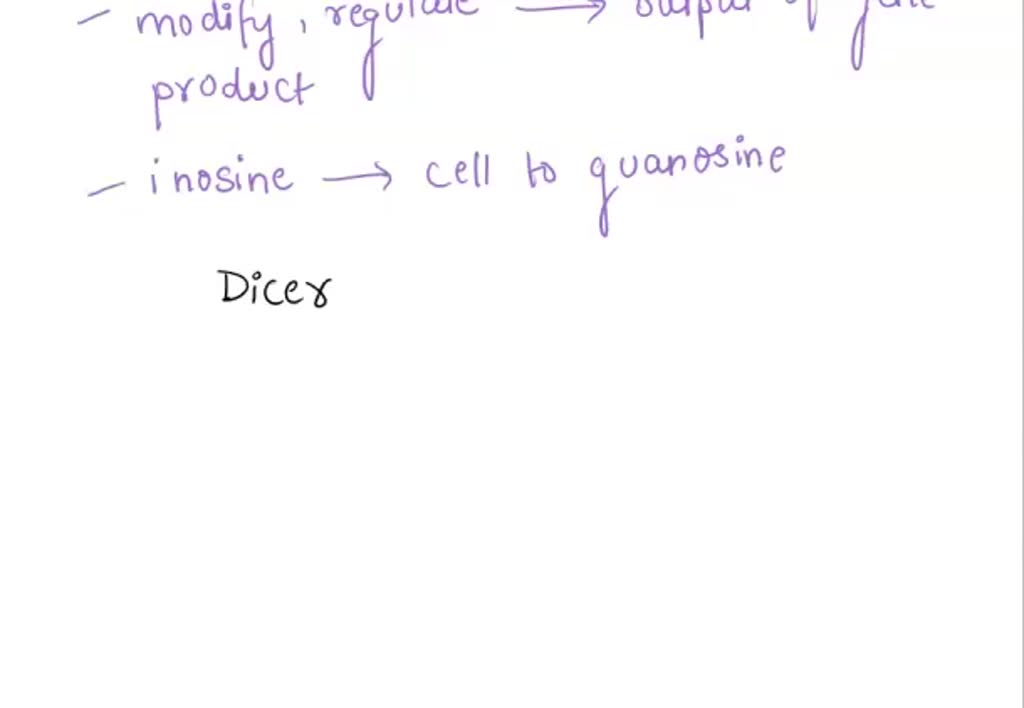 - modify, regulate → output of gene
product
- inosine → cell to guanosine
Dicer